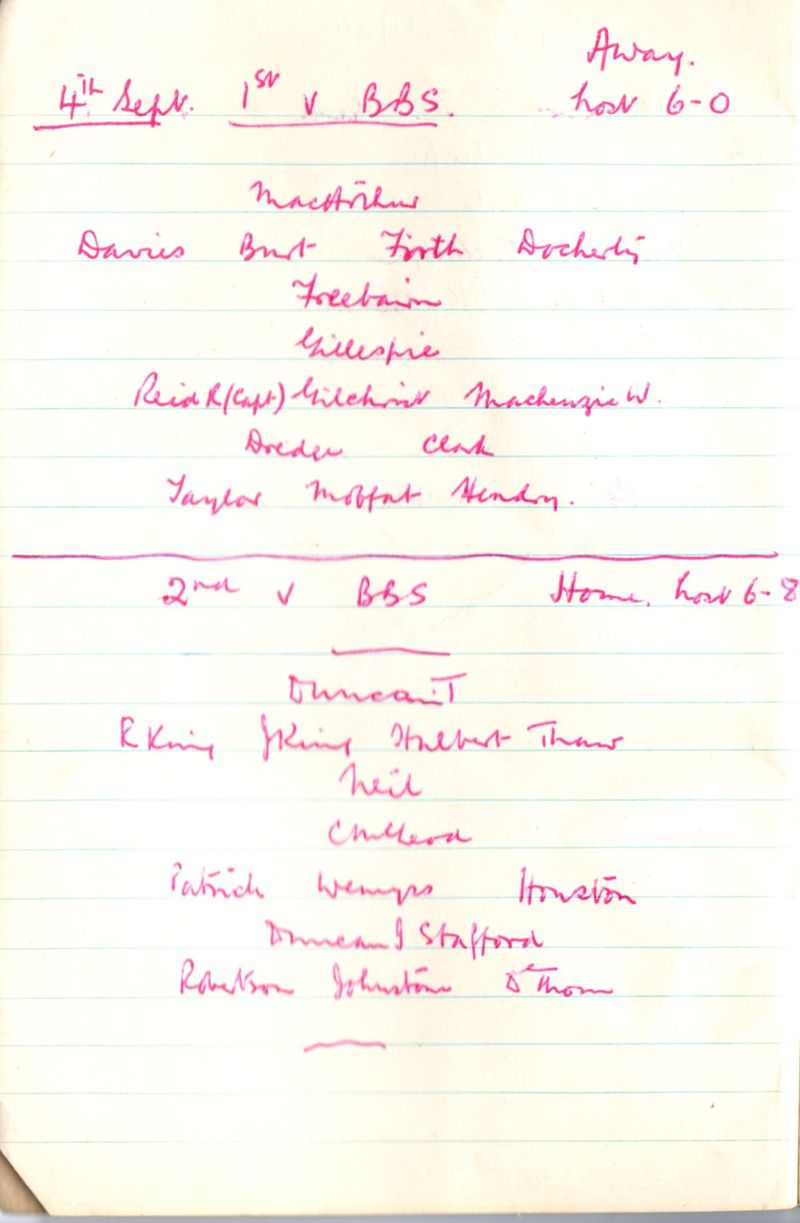 Away.
4TH Sept. 1ST v BBS. Lost 6-0
MacArthur
Davies Burt Firth Docherty
Freebairn
Gillespie
Reid R (Capt) Gilchrist Mackenzie W.
Dredge Clark
Taylor Moffat Hendry.
2nd v BBS Home. Lost 6-8
Duncan T
R King J King Halbert Thaw
Neil
Patrick Wemyss Houston
Duncan J Stafford
Robertson Johnstone Dr Thom